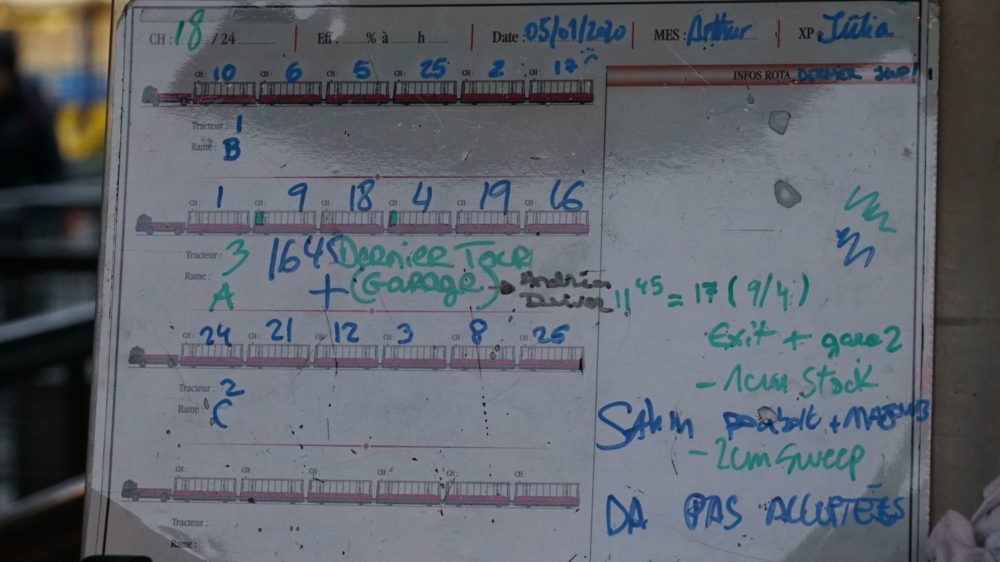 CH : 18 / 24 Eff : % à h Date : 05/01/2020 MES : Arthur XP Julia
CH : 10 CH : 6 CH : 5 CH : 25 CH : 2 CH : 17
Tracteur : 1
Rame : B
INFOS ROTA DERNIER JOUR!
CH : 1 CH : 9 CH : 18 CH : 4 CH : 19 CH : 16
Tracteur : 3 1645 DERNIER TOUR
Rame : A + (GARAGE)
11 45 = 17 (9/4)
Exit + gare 2
- 1cm Stock
24 21 12 3 8 26
Tracteur : 2
Rame : C
SAhm
- 2cm Sweep
DA PAS ACCEPTÉES
CH : CH : CH : CH : CH : CH :
Tracteur :
Rame :